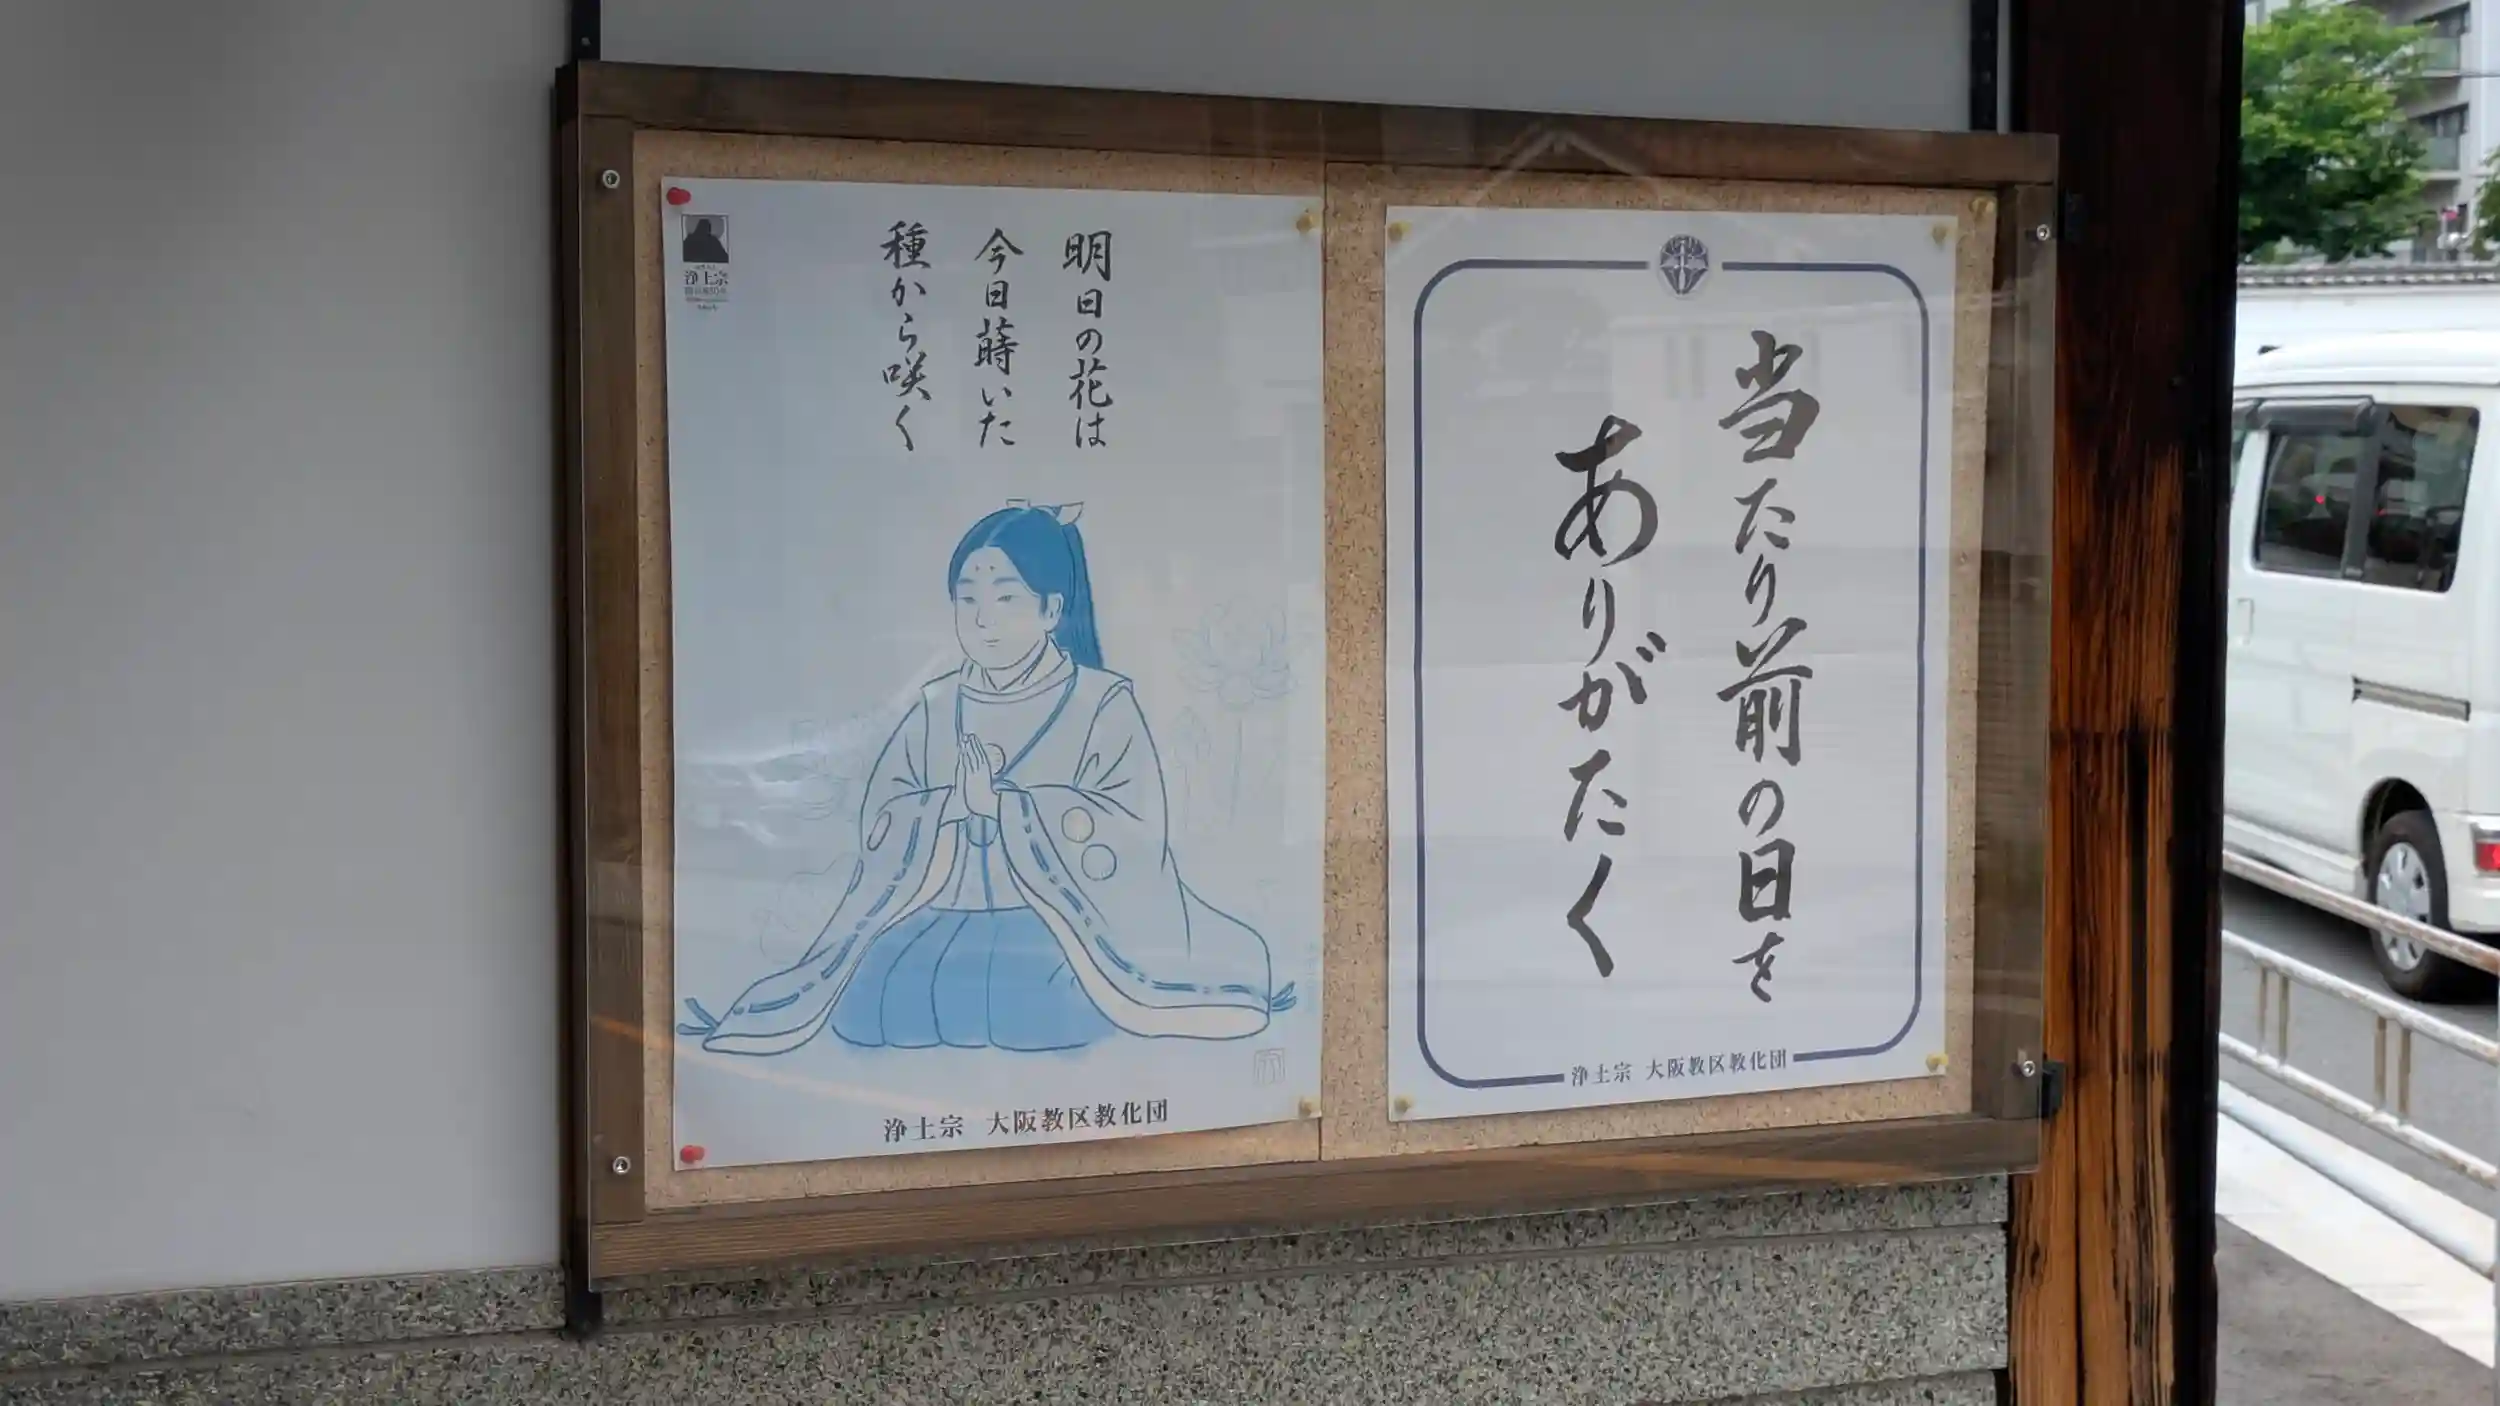 当たり前の日を
ありがたく
浄土宗 大阪教区教化団
明日の花は
今日蒔いた
種から咲く
浄土宗
浄土宗 大阪教区教化団